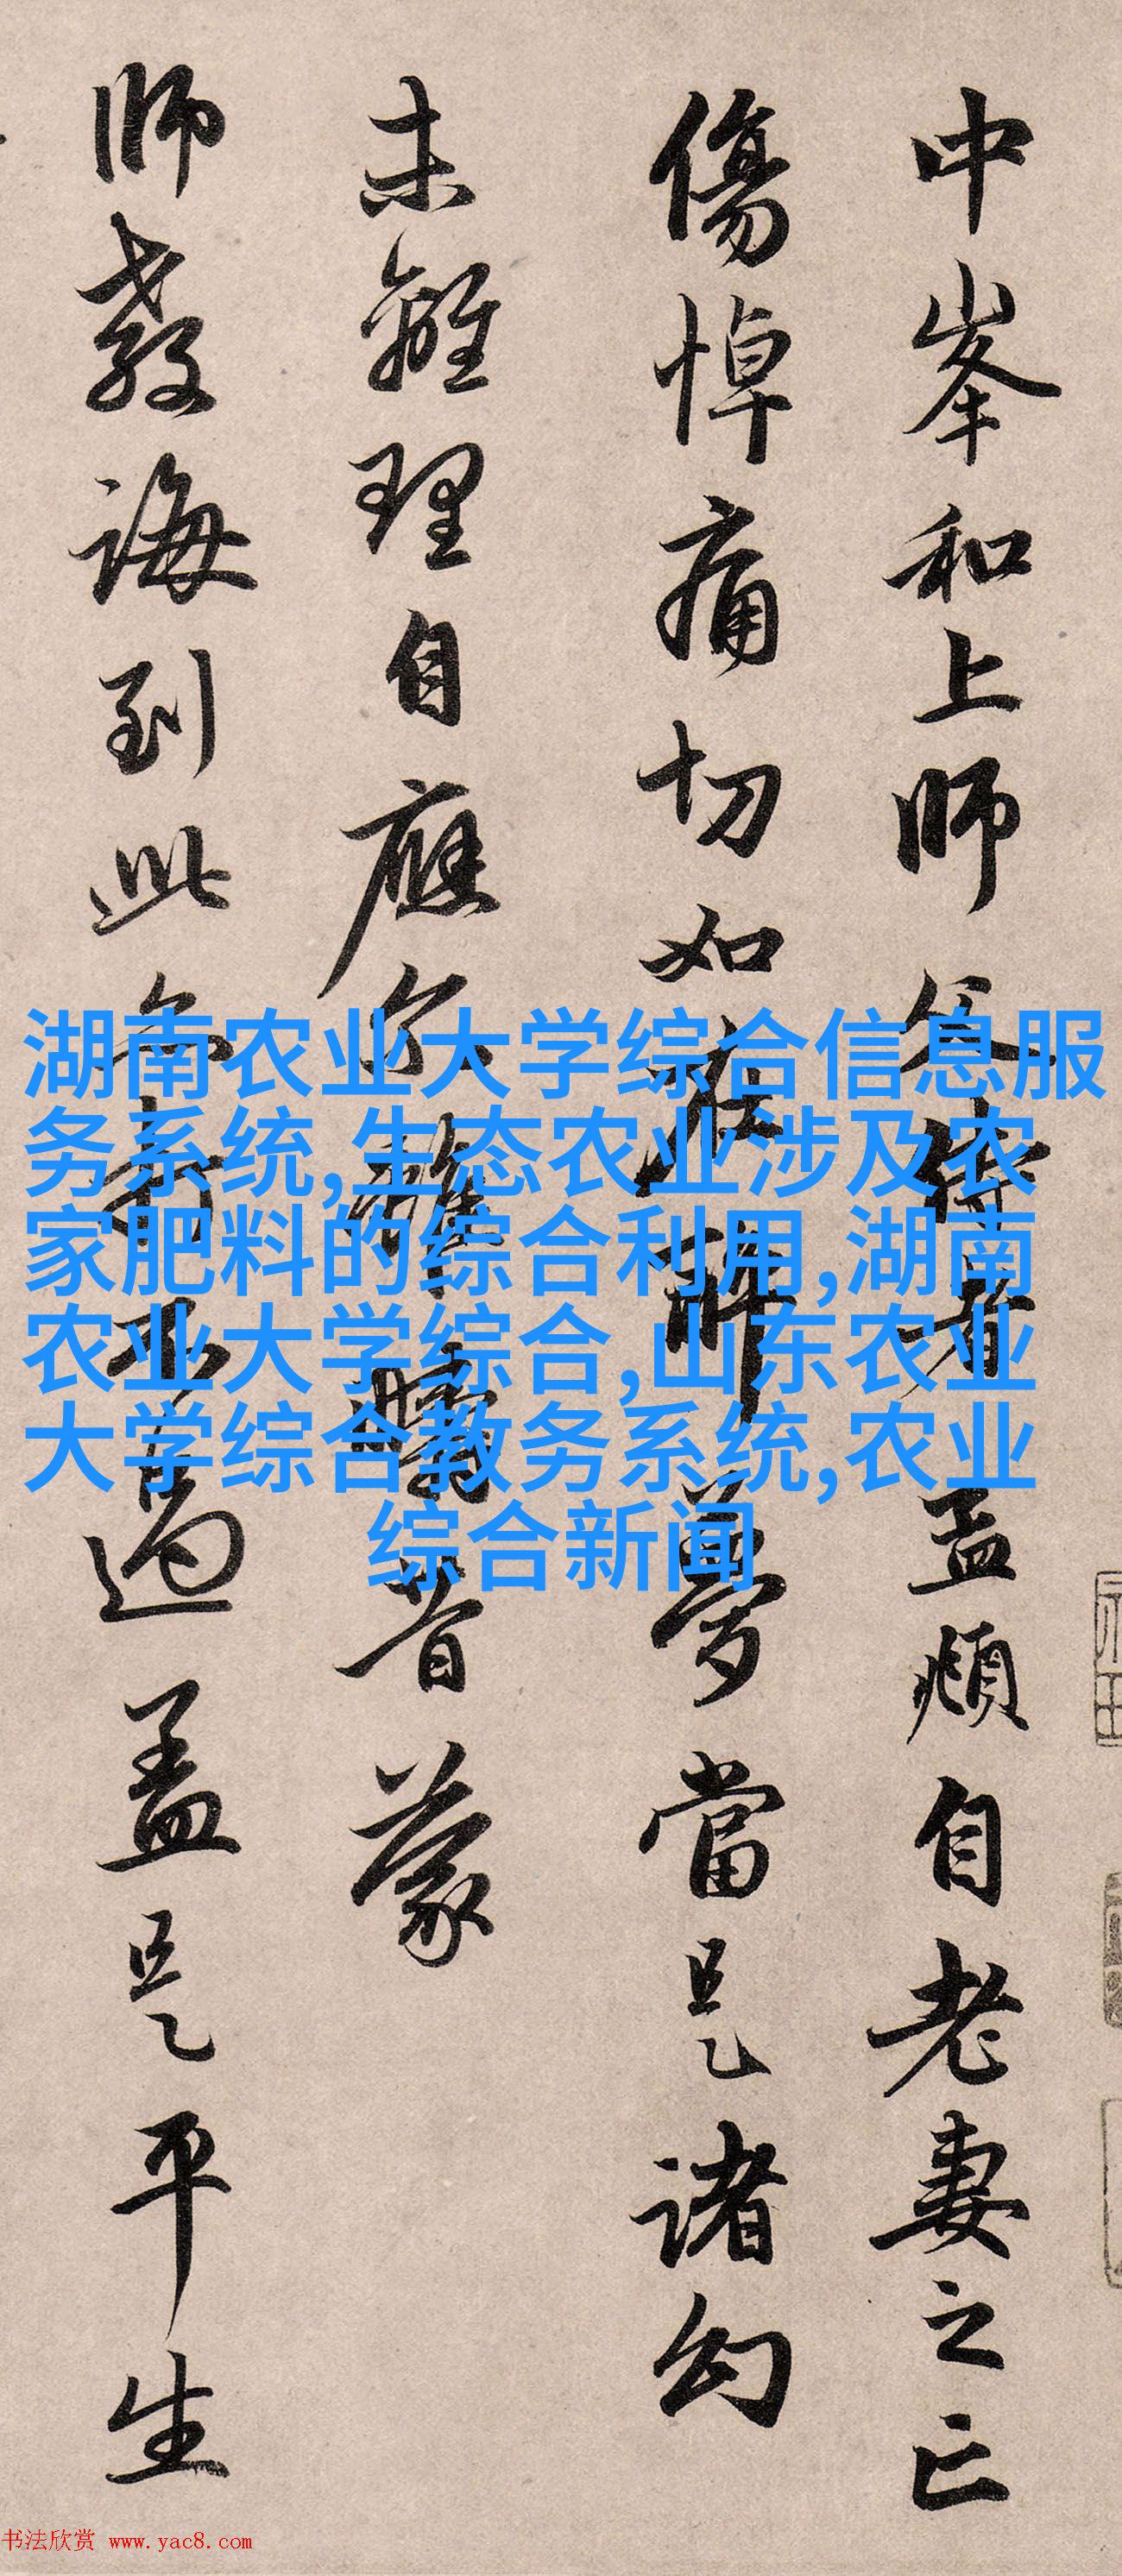 中峯和上師父侍者孟頫自老妻之亡
傷悼痛切如在醉夢當是諸幻
未離理自應尔雖疇昔蒙
師教誨到此亦打不過盖是平生
湖南农业大学综合信息服
务系统,生态农业涉及农
家肥料的综合利用,湖南
农业大学综合,山东农业
大学综合教务系统,农业
综合新闻
书法欣赏 www.yac8.com